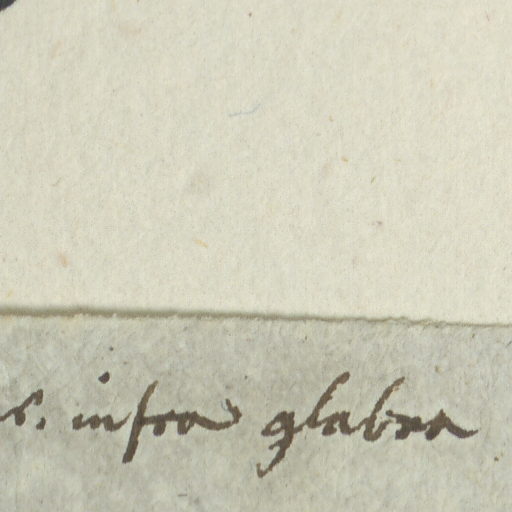 s. infra glabra